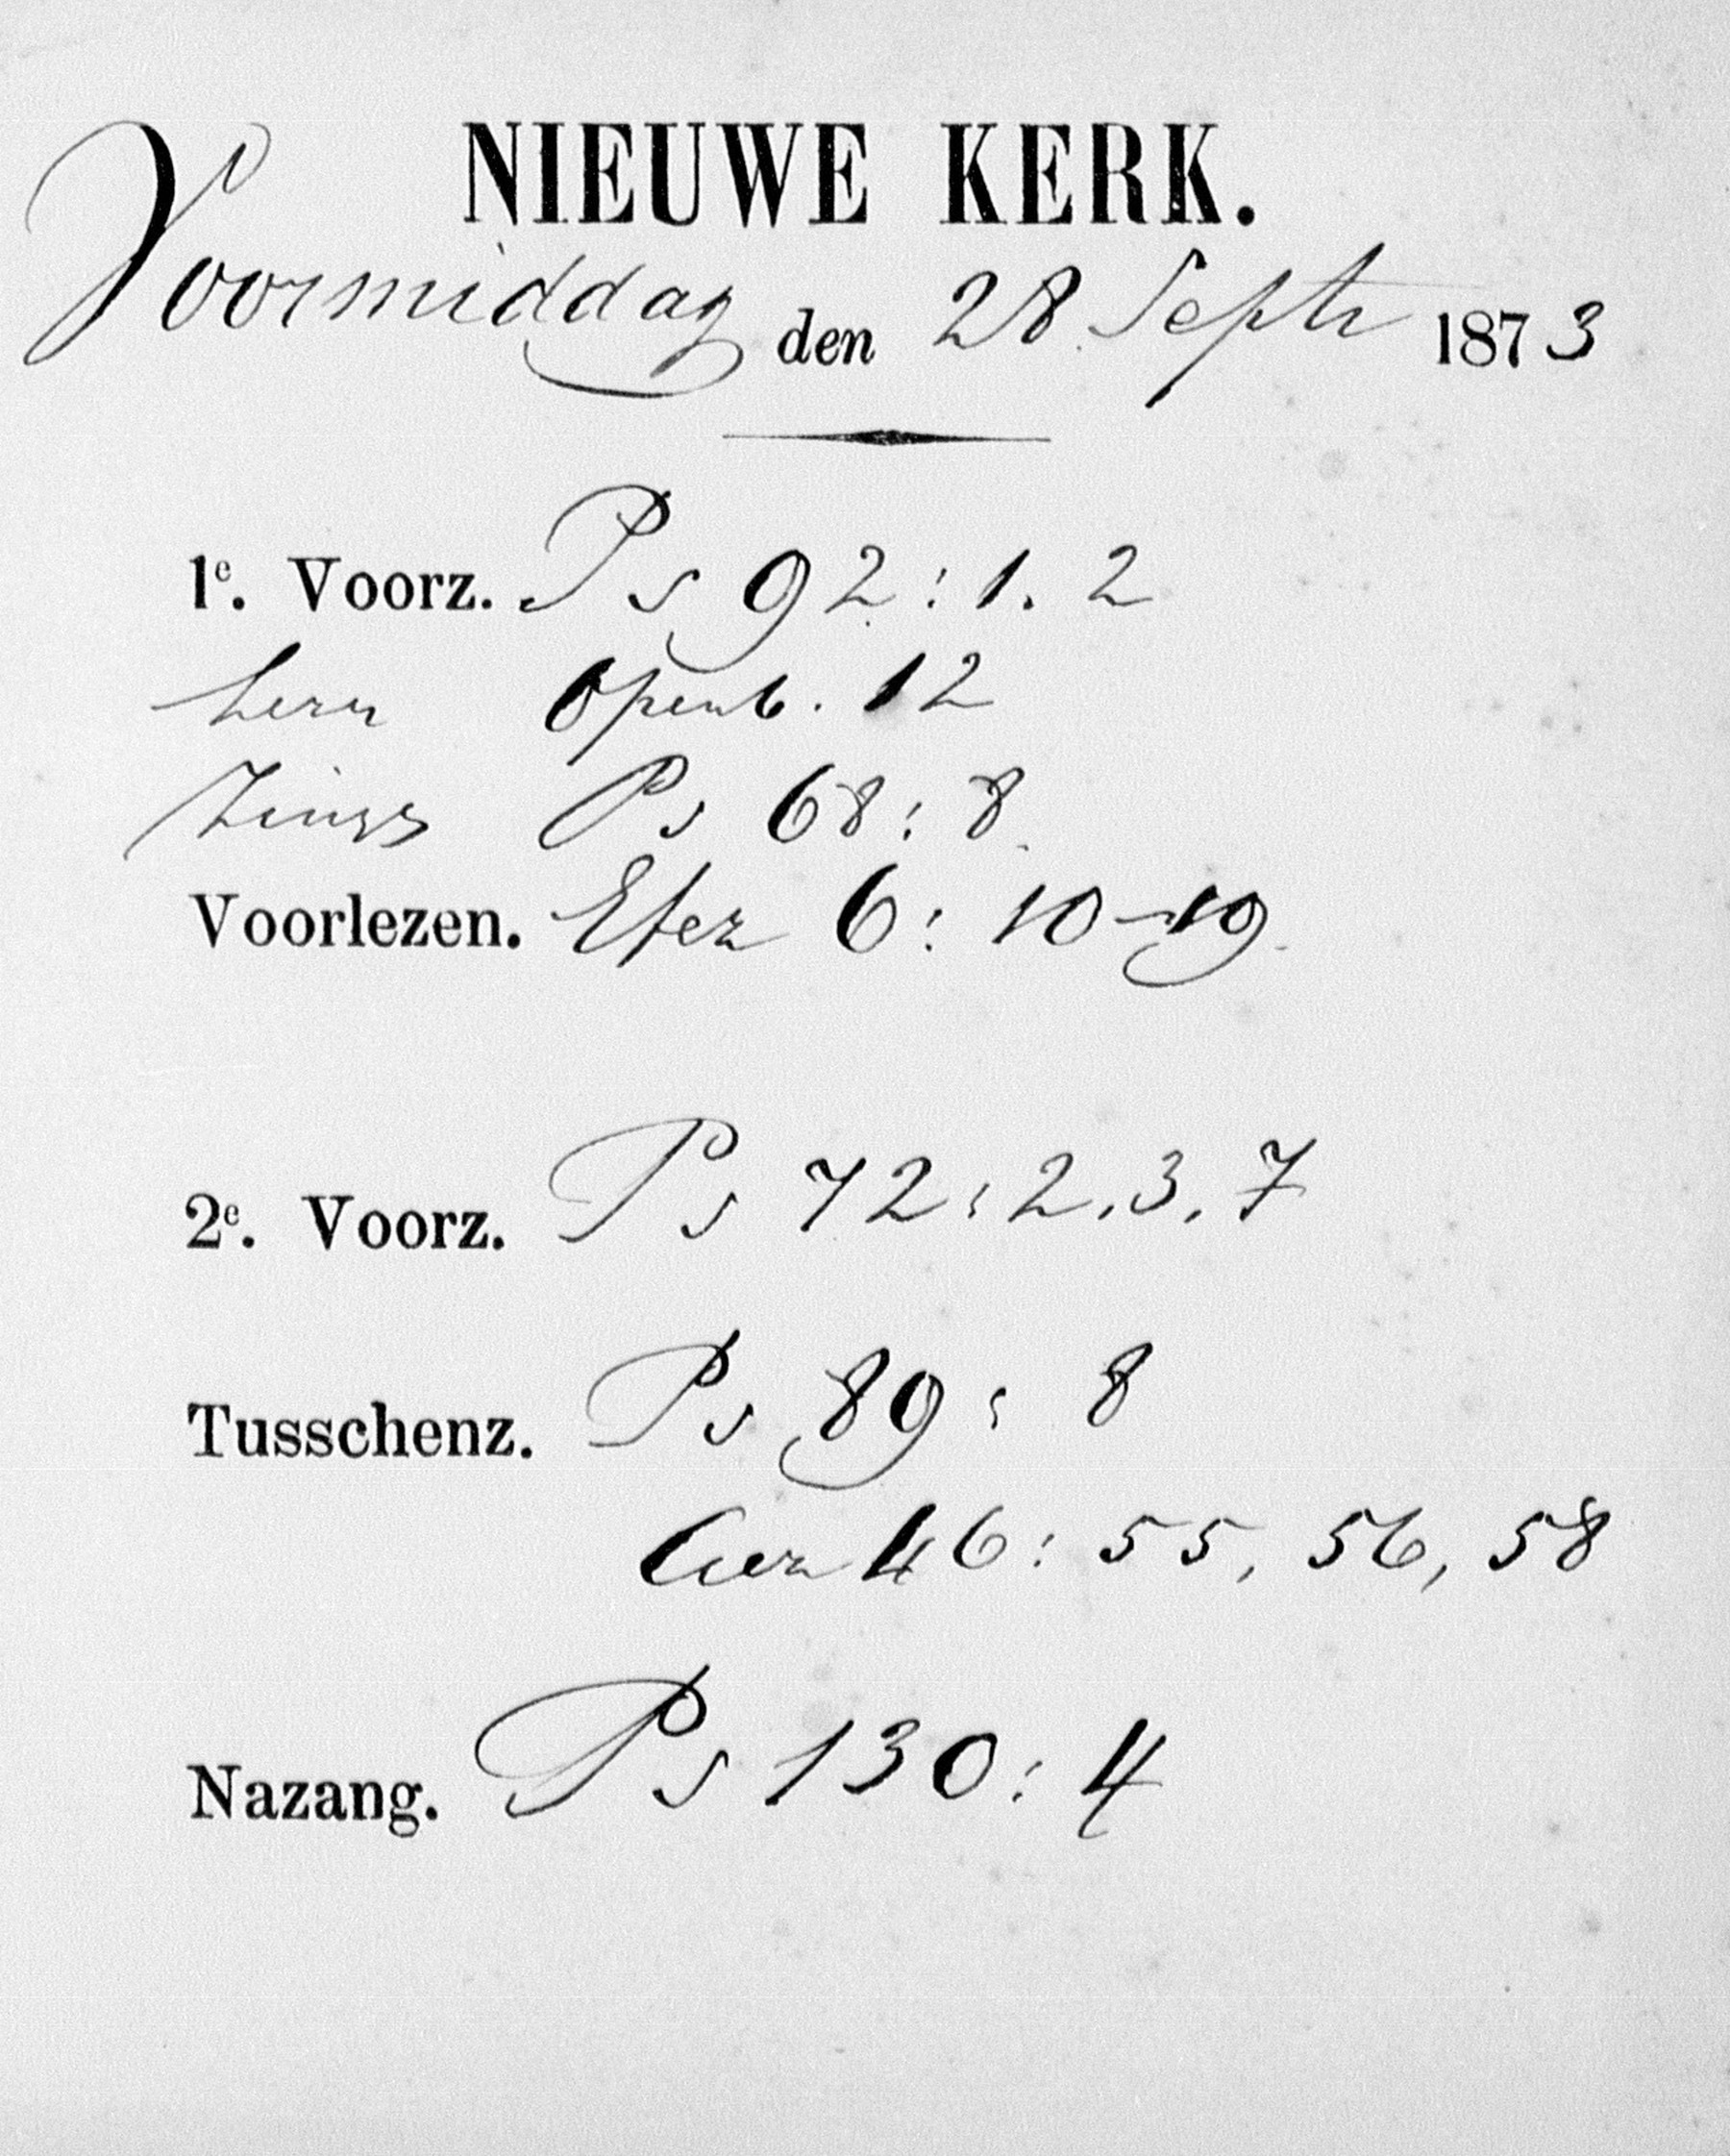 NIEUWE KERK.
Voormiddag den 28 Septr 1873
1e. Voorz. Ps 92 : 1. 2
Openb. 12
Ps 68 : 8.
Voorlezen. Efez 6 : 10-19.
2e. Voorz. Ps 72 : 2, 3, 7
Tusschenz. Ps 89 : 8
46 : 55, 56, 58
Nazang. Ps 130 : 4